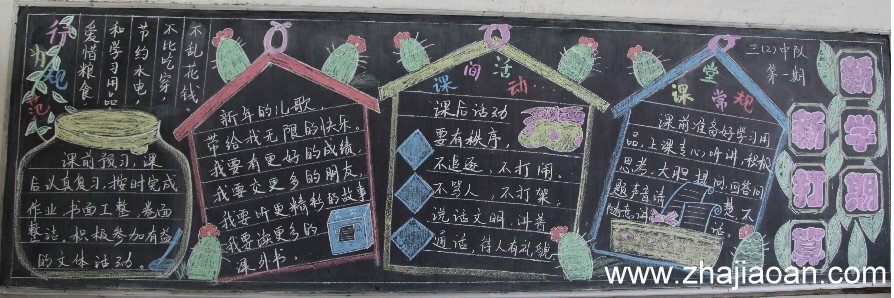 行为规范
不乱花钱
不比吃穿,
节约水电,
和学习用品
爱惜粮食
课前预习,课
后认真复习,按时完成
作业,书面工整,卷面
整洁,积极参加有益
的文体活动。
新年的儿歌,
带给我无限的快乐。
我要有更好的成绩
我要交更多的朋友
我要听更精彩的故事
我要读更多的
课外书。
课间活动
课后活动
要有秩序,
不追逐,不打闹,
不骂人,不打架,
说话文明,讲普
通话,待人有礼貌
课堂常规
课前准备好学习用
品,上课专心听讲,积极
思考,大胆提问,回答问
题声音清楚,不
随意讲话,
三(2)中队
第一期
新学期
新打算
www.zhajiaoan.com